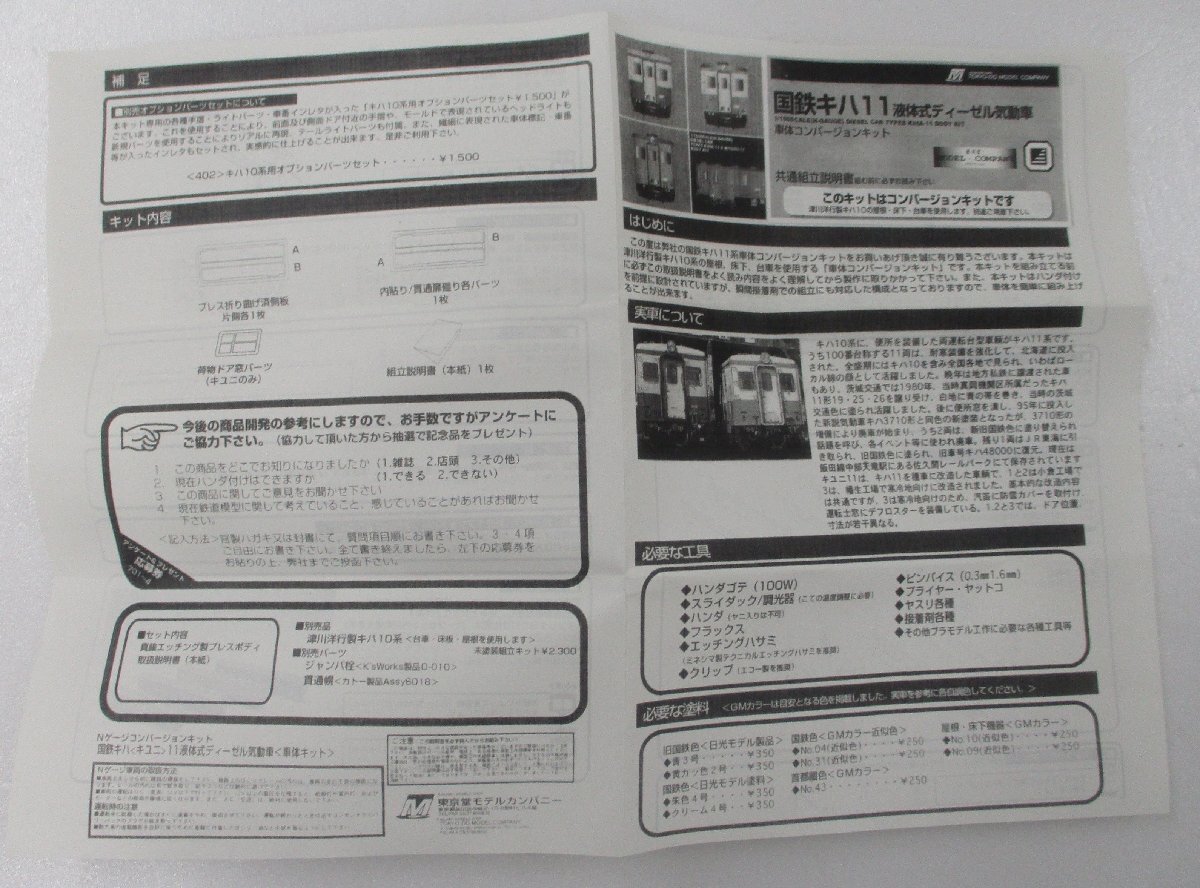 補 足
■別売オプションパーツセットについて
本キット専用の各種手摺・ライトパーツ・車番インレタが入った「キハ10系用オプションパーツセット¥1.500」が
ございます。これを使用することにより、前面及び側面ドア付近の手摺や、モールドで表現されているヘッドライトも
新規パーツを使用することによりリアルに再現。テールライトパーツも付属、また、繊細に表現された車体標記・車番
等が入ったインレタもセットされ、実感的に仕上げることが出来ます。是非ご利用下さい。
<402>キハ10系用オプションパーツセット・・・・・・¥1.500
キット内容
A
B
プレス折り曲げ済側板
片側各1枚
B
A
内貼り/貫通扉催り各パーツ
1枚
荷物ドア窓パーツ
(キユニのみ)
組立説明書(本紙)1枚
今後の商品開発の参考にしますので、お手数ですがアンケートに
ご協力下さい。(協力して頂いた方から抽選で記念品をプレゼント)
1. この商品をどこでお知りになりましたか (1.雑誌 2.店頭 3.その他)
2. 現在ハンダ付けはできますか (1.できる 2.できない)
3 この商品に関してご意見をお聞かせ下さい
4 現在鉄道模型に関して考えていること、感じていることがあればお聞かせ
下さい。
<記入方法>官製ハガキ又は封書にて、質問項目順にお書き下さい。3・4項
ご自由にお書き下さい。全て書き終えましたら、左下の応募券を
お貼りの上、弊社までご投函下さい。
アンケート&プレゼント
応募券
701-4
■セット内容
真鍮エッチング製プレスボディ
取扱説明書(本紙)
■別売品
津川洋行製キハ10系<台車・床板・屋根を使用します>
未塗装組立キット¥2.300
■別売パーツ
ジャンパ栓<K'sWorks製品D-010>
貫通幌<カトー製品Assy6018>
Nゲージコンバージョンキット
国鉄キハ<キユニ>11液体式ディーゼル気動車<車体キット>
Nゲージ車両の取扱方法
運転時の注意
東京堂モデルカンパニー
TOKYO-DO MODEL COMPANY
国鉄キハ11液体式ディーゼル気動車
車体コンバージョンキット
MODEL COMPANY
共通組立説明書組む前に必ずお読み下さい
このキットはコンバージョンキットです
津川洋行製キハ10の屋根・床下・台車を使用します。別途ご用意下さい。
はじめに
この度は弊社の国鉄キハ11系車体コンバージョンキットをお買いあげ頂き誠に有り難うございます。本キットは
津川洋行製キハ10系の屋根、床下、台車を使用する「車体コンバージョンキット」です。本キットを組み立てる前
に必ずこの取扱説明書をよく読み内容をよく理解してから製作に取りかかって下さい。また、本キットはハンダ付け
を前提に設計されていますが、瞬間接着剤での組立にも対応した構成となっておりますので、車体を簡単に組み上げ
ることが出来ます。
実車について
キハ10系に、便所を装備した両運転台型車輌がキハ11系です。
うち100番台称する11両は、耐寒装備を強化して、北海道に投入
された。全盛期にはキハ10を含み全国各地で見られ、いわばロー
カル線の顔として活躍しました。晩年は地方私鉄に譲渡された車
もあり、茨城交通では1980年、当時真岡機関区所属だったキハ
11形19・25・26を譲り受け、白地に青の帯を巻き、当時の茨城
交通色に塗られ活躍しました。後に便所窓を潰し、95年に投入し
た新鋭気動車キハ3710形と同色の新塗装となったが、3710形の
増備により廃車が始まり、うち2両は、新旧国鉄色に塗り替えられ
話題を呼び、各イベント等に使われ廃車。残り1両はJR東海に引
き取られ、旧国鉄色に塗られ、旧車号キハ48000に復元。現在は
飯田線中部天竜駅にある佐久間レールパークにて保存されています
キユニ11は、キハ11を種車に改造した車輌で、1と2は小倉工場で
3は、幡生工場で寒冷地向けに改造されました。基本的な改造内容
は共通ですが、3は寒冷地向けのため、汽笛に防雪カバーを取付け
運転士窓にデフロスターを装備している。1.2と3では、ドア位置、
寸法が若干異なる。
必要な工具
◆ハンダゴテ(100W)
◆スライダック/調光器(こての温度調整に必要)
◆ハンダ(ヤニ入りは不可)
◆フラックス
◆エッチングハサミ
(ミネシマ製テクニカルエッチングハサミを推奨)
◆クリップ(エコー製を推奨)
◆ピンバイス(0.3㎜1.6㎜)
◆プライヤー・ヤットコ
◆ヤスリ各種
◆接着剤各種
◆その他プラモデル工作に必要な各種工具等
必要な塗料 <GMカラーは目安となる色を掲載しました。実車を参考に各自調色してください。>
旧国鉄色<日光モデル製品>
◆青3号・・・・・・¥350
◆黄カッ色2号・・・¥350
国鉄色<日光モデル塗料>
◆朱色4号・・・・¥350
◆クリーム4号・・・¥350
国鉄色<GMカラー近似色>
◆No.04(近似色)・・・・・¥250
◆No.31(近似色)・・・・・¥250
首都圏色<GMカラー>
◆No.43・・・・・・・・¥250
屋根・床下機器<GMカラー>
◆No.10(近似色)・・・・¥250
◆No.09(近似色)・・・・¥250